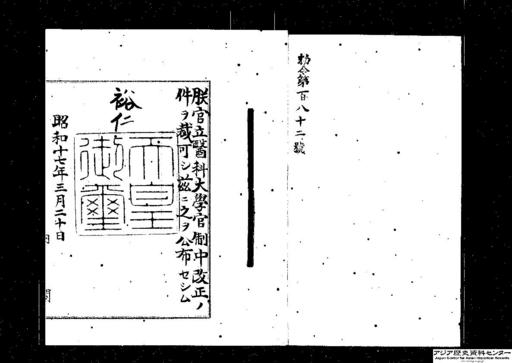 勅令第百八十二號
朕官立醫科大學官制中改正ノ
件ヲ裁可シ茲ニ之ヲ公布セシム
裕仁
天皇
御璽
昭和十七年三月二十日
内
アジア歴史資料センター
Japan Center for Asian Historical Records